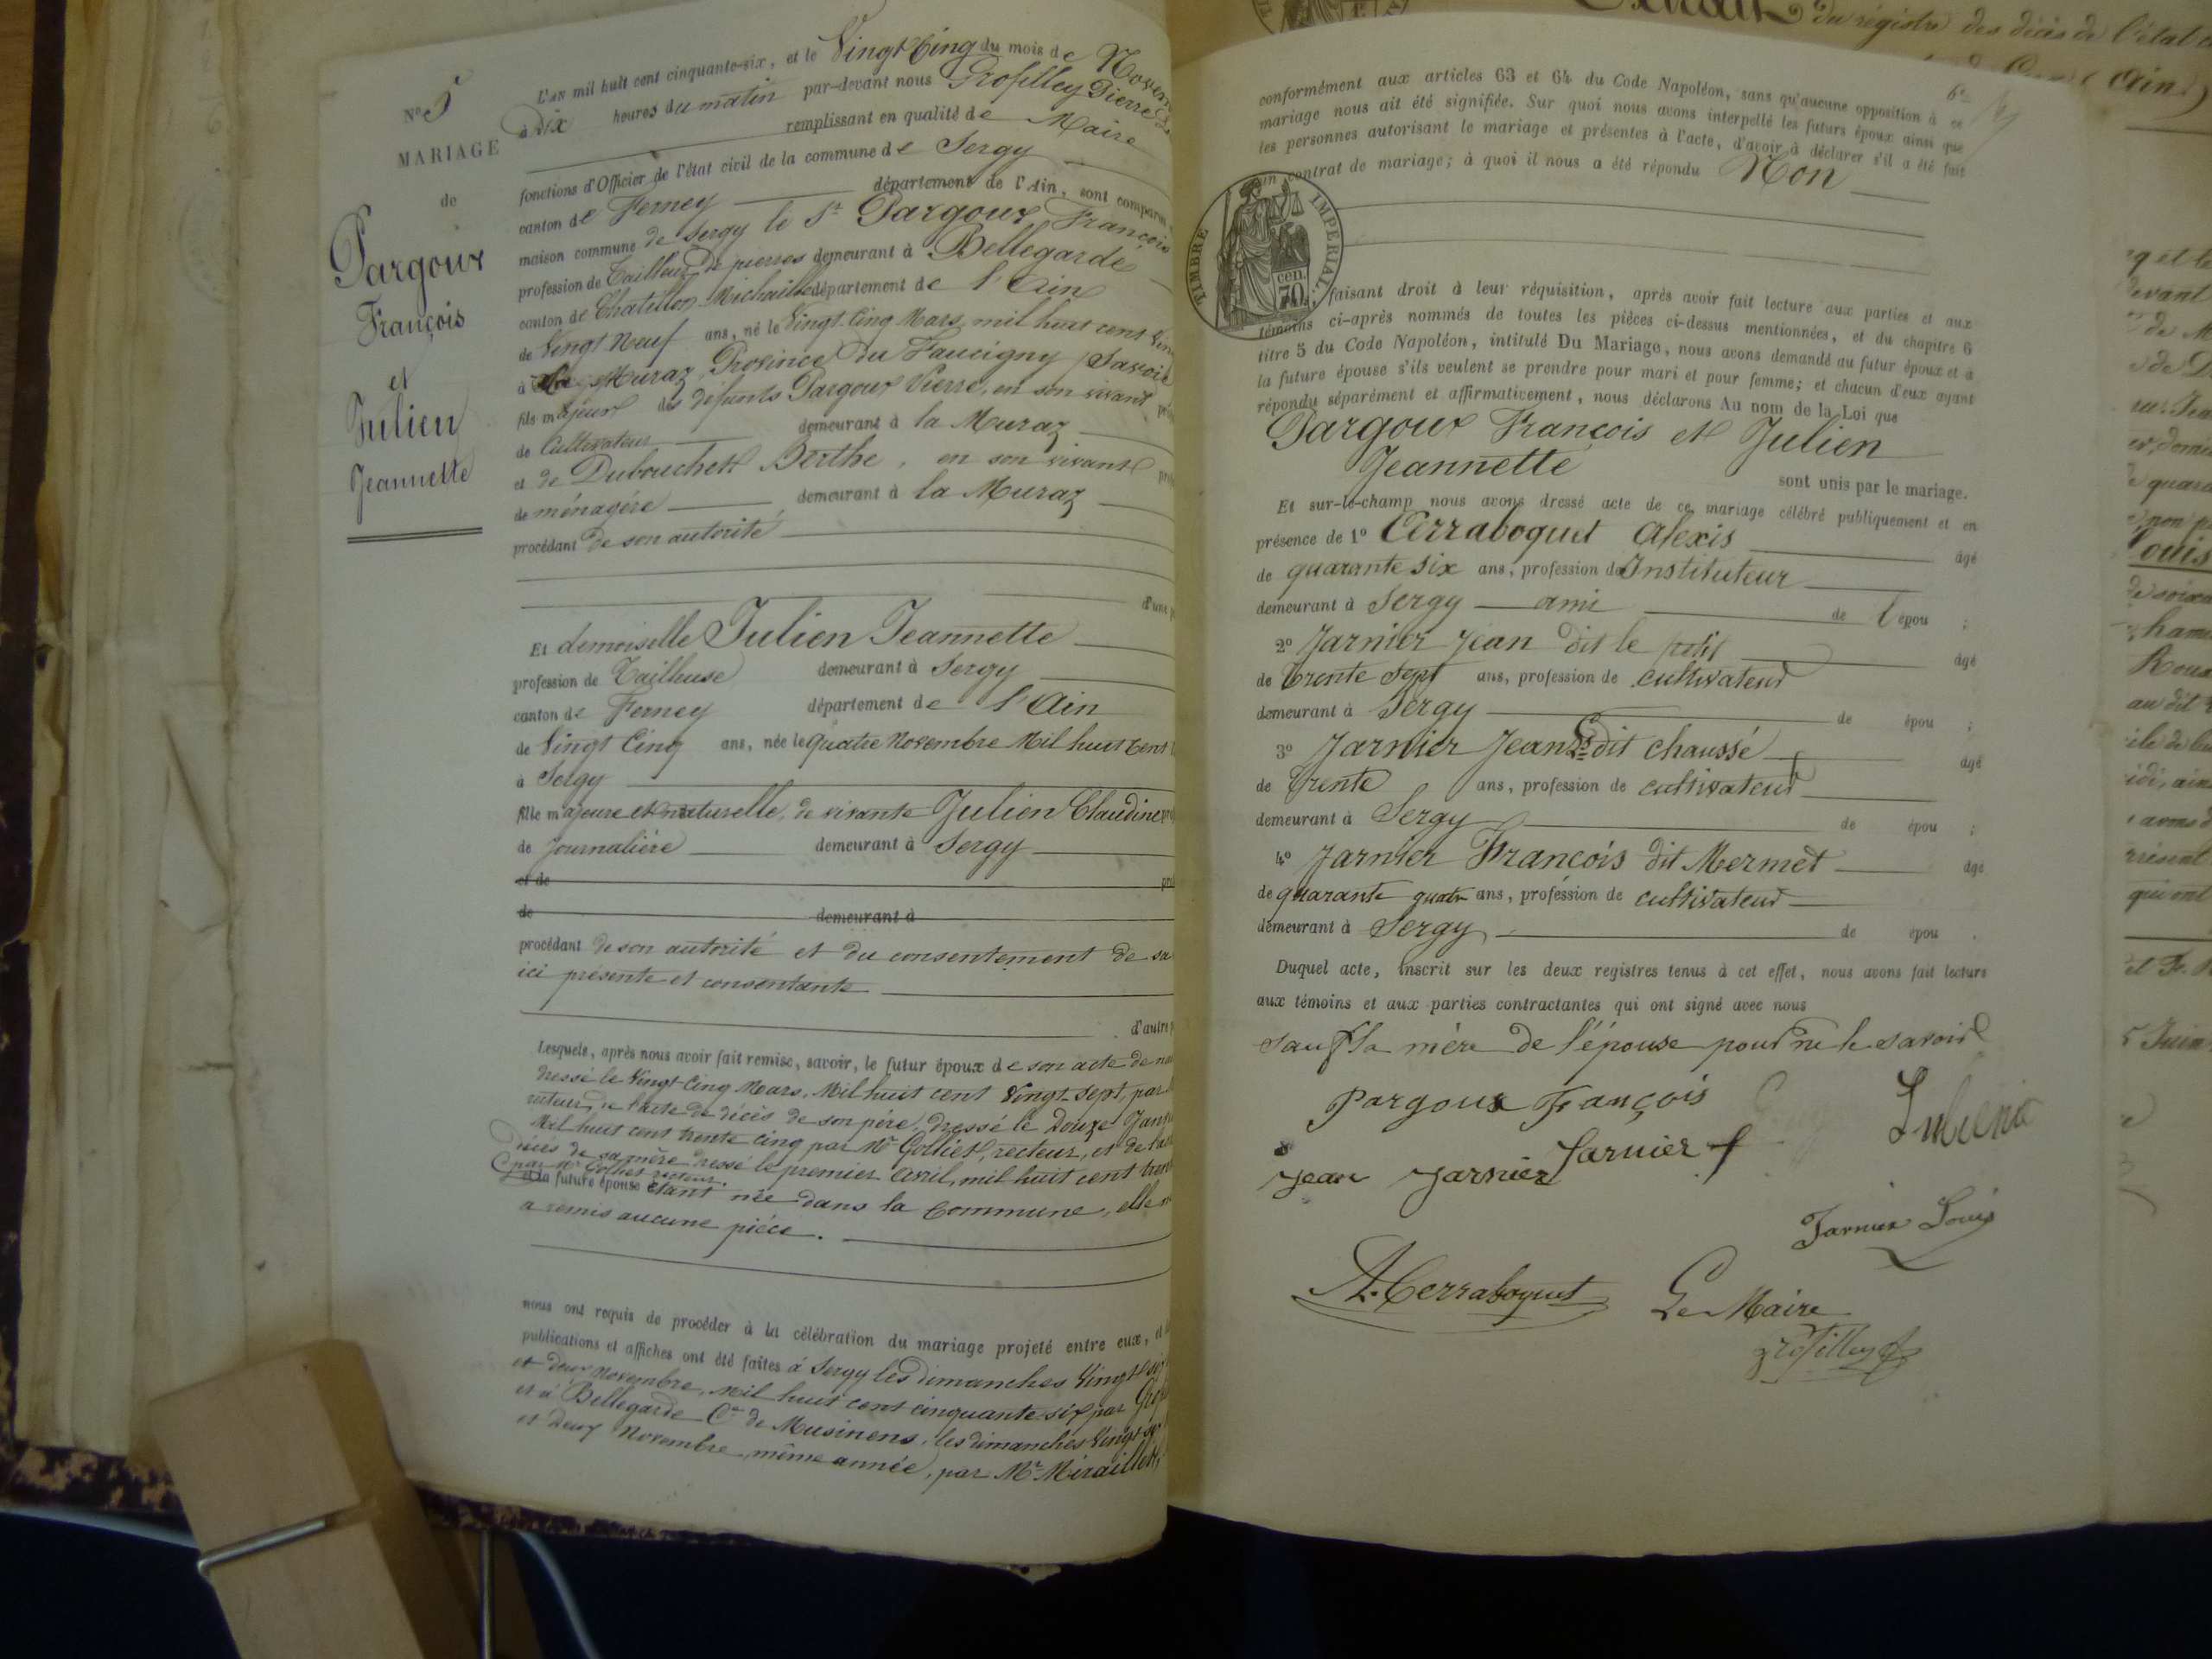 N° 5
MARIAGE
de
Pargoux
François
et
Julien
Jeannette
L'AN mil huit cent cinquante-six, et le Vingt Cinq du mois de
à dix heures du matin par-devant nous Grosfilley Pierre
remplissant en qualité de Maire
fonctions d'Officier de l'état civil de la commune de Sergy
canton de Ferney département de l'Ain, sont
maison commune de Sergy le Sr Pargoux, François
profession de Tailleur de pierres demeurant à Bellegarde
canton de Chatillon Michaille département de l'Ain
de Vingt Neuf ans, né le Vingt-Cinq Mars mil huit cent
à La Muraz, Province du Faucigny (Savoie
fils majeur des défunts Pargoux Pierre, en son vivant
de Cultivateur demeurant à la Muraz
et de Dubouchet Berthe, en son vivant
de ménagère demeurant à la Muraz
procédant de son autorité
d'une
Et demoiselle Julien Jeannette
profession de Tailleuse demeurant à Sergy
canton de Ferney département de l'Ain
de Vingt Cinq ans, née le quatre Novembre Mil huit cent
à Sergy
fille majeure et naturelle, de vivante Julien Claudine
de Journalière demeurant à Sergy
et de
de demeurant à
procédant de son autorité et du consentement de sa
ici présente et consentante
d'autre
Lesquels, après nous avoir fait remise, savoir, le futur époux de son acte de
dressé le Vingt-Cinq Mars, Mil huit cent Vingt-Sept, par
recteur, de l'acte de décès de son père, dressé le Douze
Mil huit cent trente cinq par Mr Golliet, recteur, et de
décès de sa mère dressé le premier Avril, mil huit cent
par Mr Golliet recteur.
et la future épouse étant née dans la Commune, elle
a remis aucune pièce.
nous ont requis de procéder à la célébration du mariage projeté entre eux,
publications et affiches ont été faites à Sergy les dimanches Vingt-six
et deux Novembre, mil huit cent cinquante-six par
et à Bellegarde Cne de Musinens, les dimanches Vingt-six
et deux Novembre, même année, par Mr Miraillet,
conformément aux articles 63 et 64 du Code Napoléon, sans qu'aucune opposition à ce
mariage nous ait été signifiée. Sur quoi nous avons interpellé les futurs époux ainsi que
les personnes autorisant le mariage et présentes à l'acte, d'avoir à déclarer s'il a été fait
un contrat de mariage; à quoi il nous a été répondu Non
TIMBRE IMPERIAL
cen.
70.
faisant droit à leur réquisition, après avoir fait lecture aux parties et aux
témoins ci-après nommés de toutes les pièces ci-dessus mentionnées, et du chapitre 6
titre 5 du Code Napoléon, intitulé Du Mariage, nous avons demandé au futur époux et à
la future épouse s'ils veulent se prendre pour mari et pour femme; et chacun d'eux ayant
répondu séparément et affirmativement, nous déclarons Au nom de la Loi que
Pargoux François et Julien
Jeannette
sont unis par le mariage.
Et sur-le-champ nous avons dressé acte de ce mariage célébré publiquement et en
présence de 1° Cerraboquet Alexis âgé
de quarante six ans, profession de Instituteur
demeurant à Sergy ami de l'épou ;
2° Jarnier Jean dit le petit âgé
de trente sept ans, profession de cultivateur
demeurant à Sergy de épou ;
3° Jarnier Jean Ls dit chaussé âgé
de trente ans, profession de cultivateur
demeurant à Sergy de épou ;
4° Jarnier François dit Mermet âgé
de quarante quatre ans, profession de cultivateur
demeurant à Sergy de épou .
Duquel acte, inscrit sur les deux registres tenus à cet effet, nous avons fait lecture
aux témoins et aux parties contractantes qui ont signé avec nous
sauf la mère de l'épouse pour ne le savoir
Pargoux François
Jarnier f
Jean Jarnier
Jarnier Louis
A. Cerraboquet
Le Maire
du régistre des décès de l'état